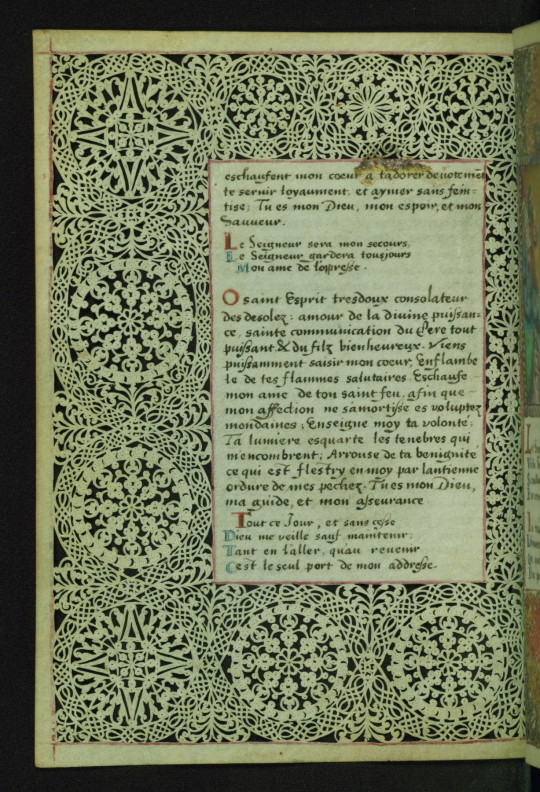 eschaufent mon coeur a tadorer devotemet
te servir loyaument, et aymer sans fein-
tise; Tu es mon Dieu, mon espoir, et mon
Sauveur.
Le Seigneur sera mon secours,
Le Seigneur gardera tousjours
Mon ame de loppresse.
O saint Esprit tresdoux consolateur
des desolez: amour de la divine puissan-
ce, sainte communication du Pere tout
puissant & du filz bienheureux. Viens
puissamment saisir mon coeur, Enflambe
le de tes flammes salutaires. Eschaufe
mon ame de ton saint feu, afin que
mon affection ne samortisse es voluptez
mondaines; Enseigne moy ta volonté:
Ta lumiere esquarte les tenebres qui
m'encombrent; Arrouse de ta benignité
ce qui est flestry en moy par lantienne
ordure de mes pechez. Tu es mon Dieu,
ma guide, et mon asseurance
Tout ce Jour, et sans cesse
Dieu me veille sauf maintenir:
Tant en l'aller, quau revenir
Cest le seul port de mon addresse.